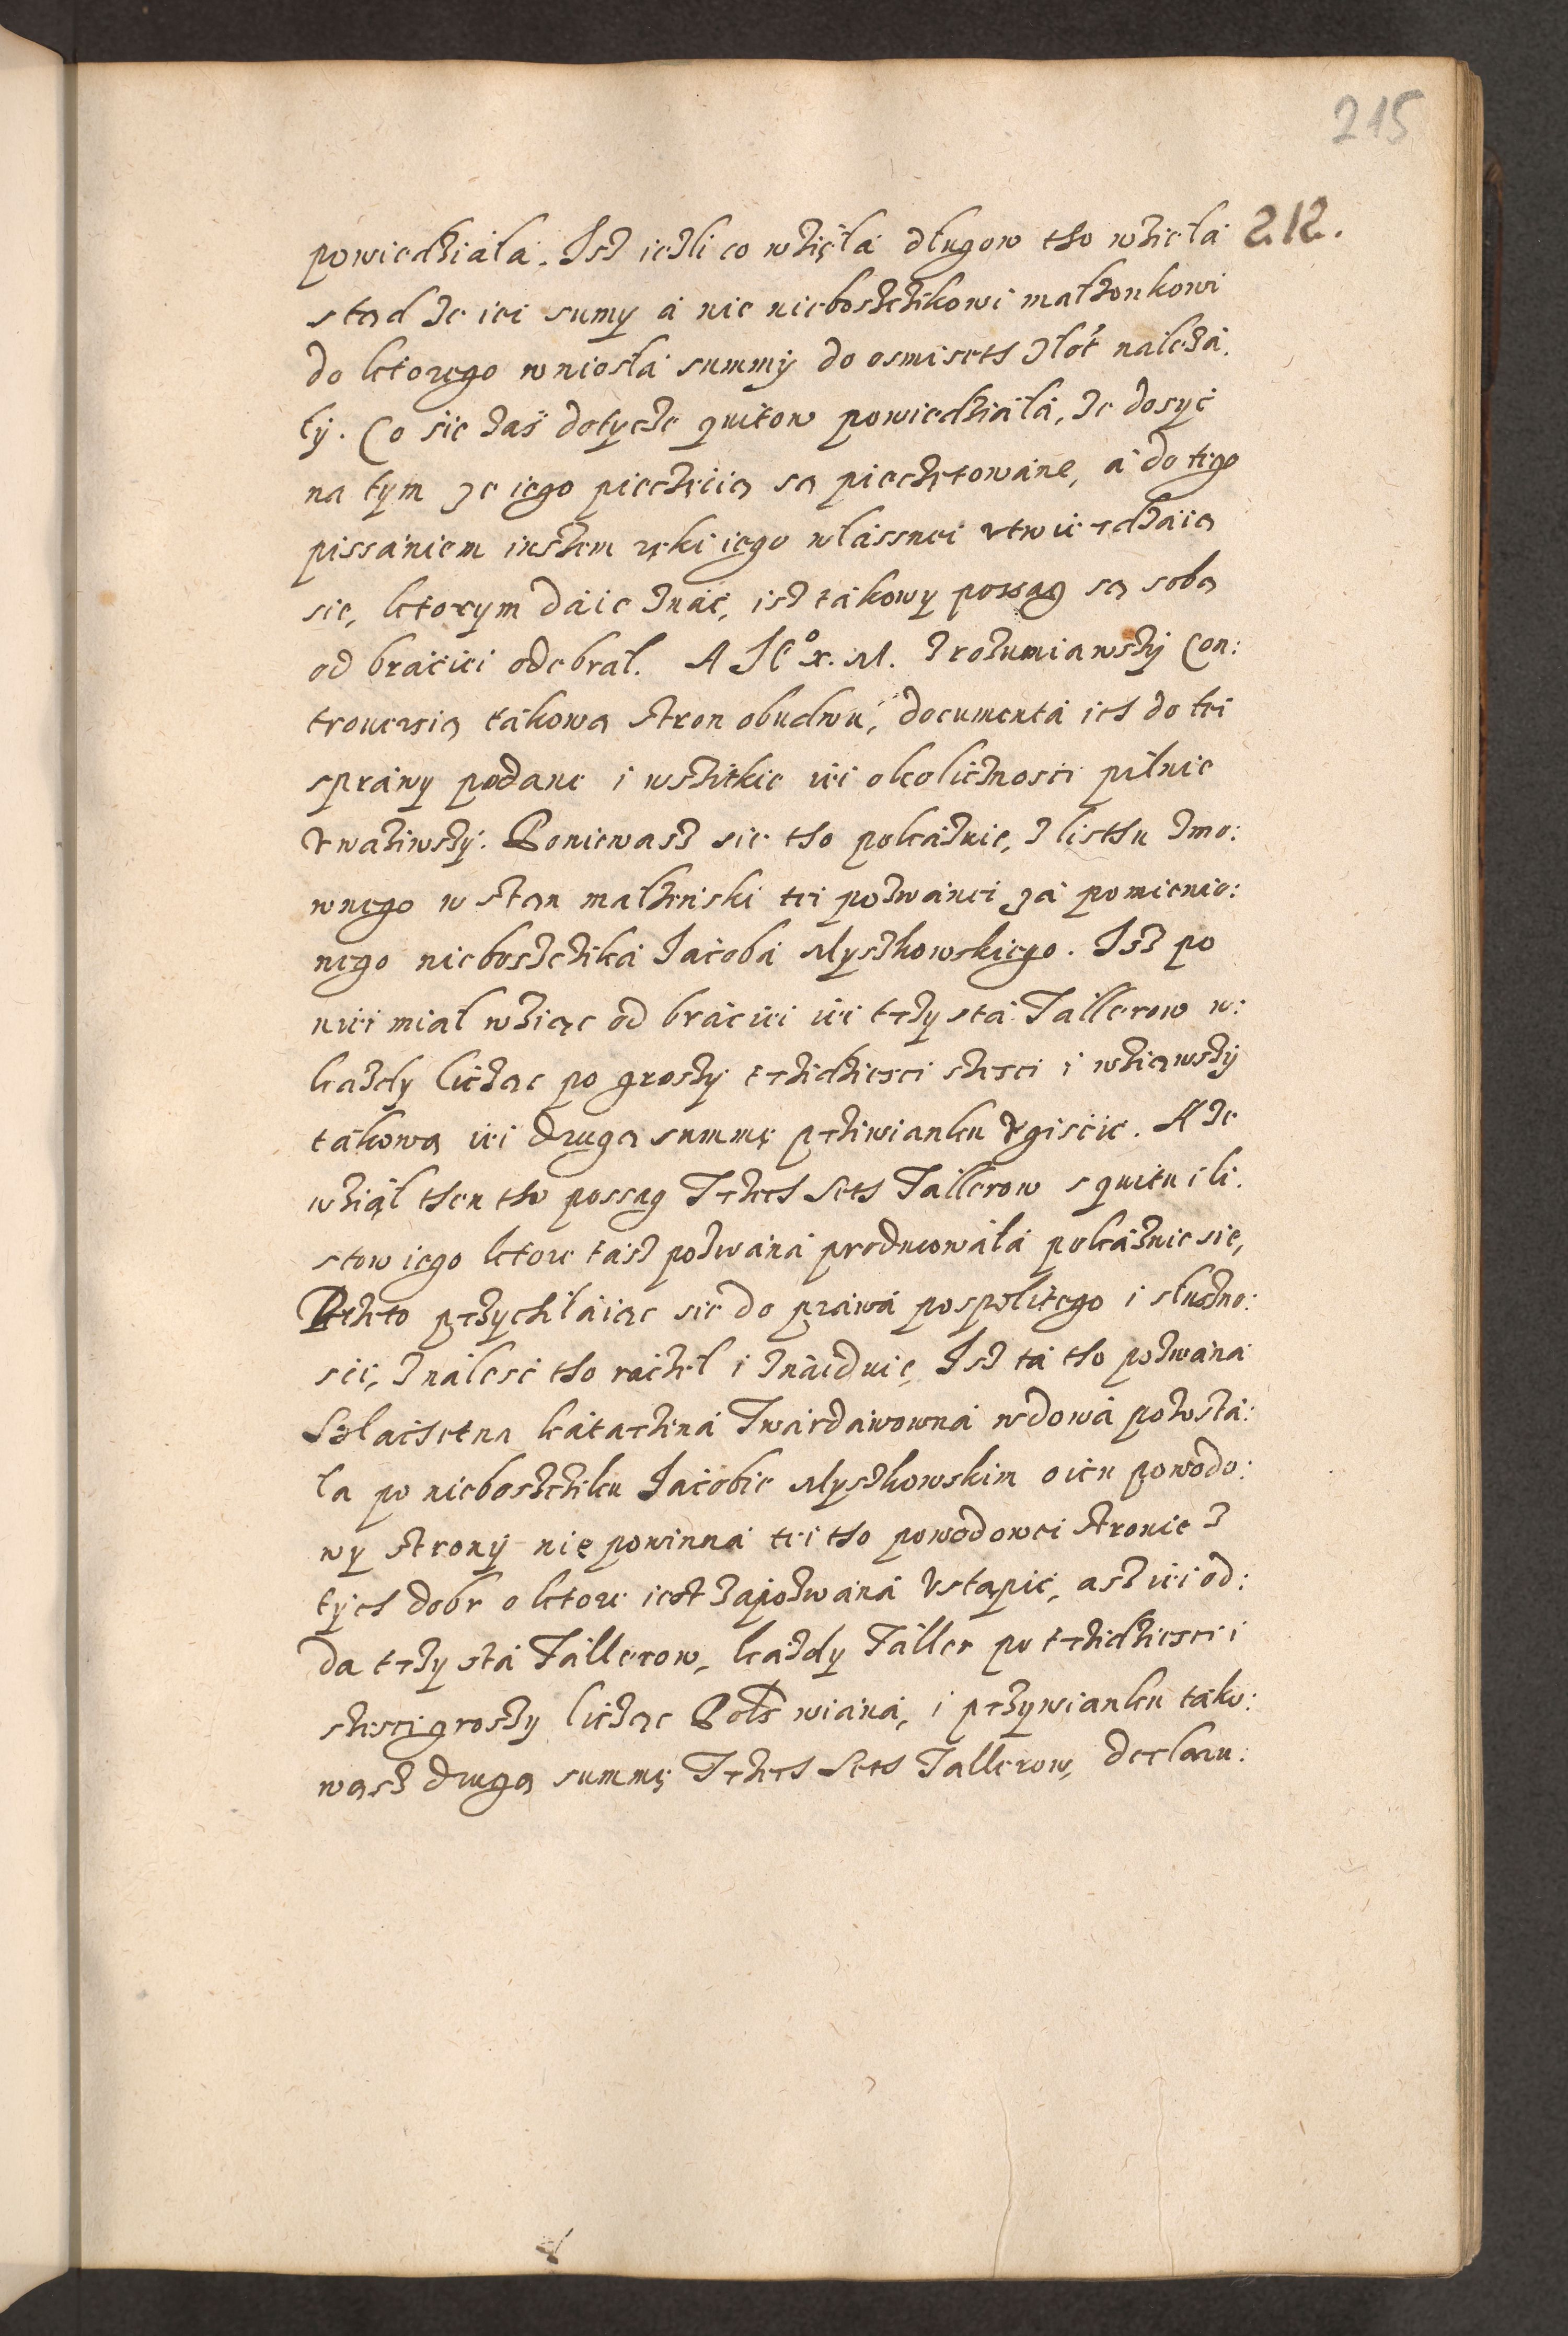 215
212.
powiedziáłá. Isz iezli co wzięłá długow tho wzięłá
stąd ze iei sumy á nie nieboszczikowi małzonkowi
do ktorego wniosłá summy do osmiseth złot nalezá.
ły. Co sie zaś dotycze quitow powiedziáłá, ze dosyć
na tym ze iego pieczęcią są pieczętowáne, á do tego
pissániem inszem ręki iego włássnei vtwierdzáią
sie, ktorym dáie znáć, isz tákowy possag zą sobą
od bráciei odebrał. A JC°.x.M. zrozumiawszÿ Con:
trouersią tákową stron obudwu, documentá ich do tei
spráwy podáne i wszitkie iei okolicznosci pilnie
vwáziwszÿ. Poniewasz sie tho pokázuie, z listhu zmo:
wnego w stan małzenski tei pozwánei zá pomienio:
nego nieboszcziká Jacobá Myszkowskiego. Isz po
niei miał wziąc od bráciei iei trzystá Tállerow w:
kazdy licząc po groszy trzidziesci szesci i wziąwszÿ
tákową iei drugą summę prziwianku vgiscic. A ze
wziął then tho possag Trzech Seth Tállerow s quitu i li:
stow iego ktore tasz pozwáná produowáłá pokázuie sie,
Przeto przychiláiąc sie do práwá pospolitego i słuszno:
sci, ználesć tho ráczeł i znáiduie, Isz tá tho pozwáná
Szlachetna Kátarziná Twárdáwowná wdowá pozostá:
ła po nieboszcziku Jacobie Myszkowskim oicu powodo:
wy stronÿ nie powinná tei tho powodowei stronie z
tych dobr o ktore iest zápozwáná vstąpić, asz iei od:
da trzystá Tállerow, kázdy Táller po trzidziesci i
szesci groszy licząc Pols wiáná, i przywianku tako:
wąsz drugą summę Trzech Seth Tallerow, declaru: